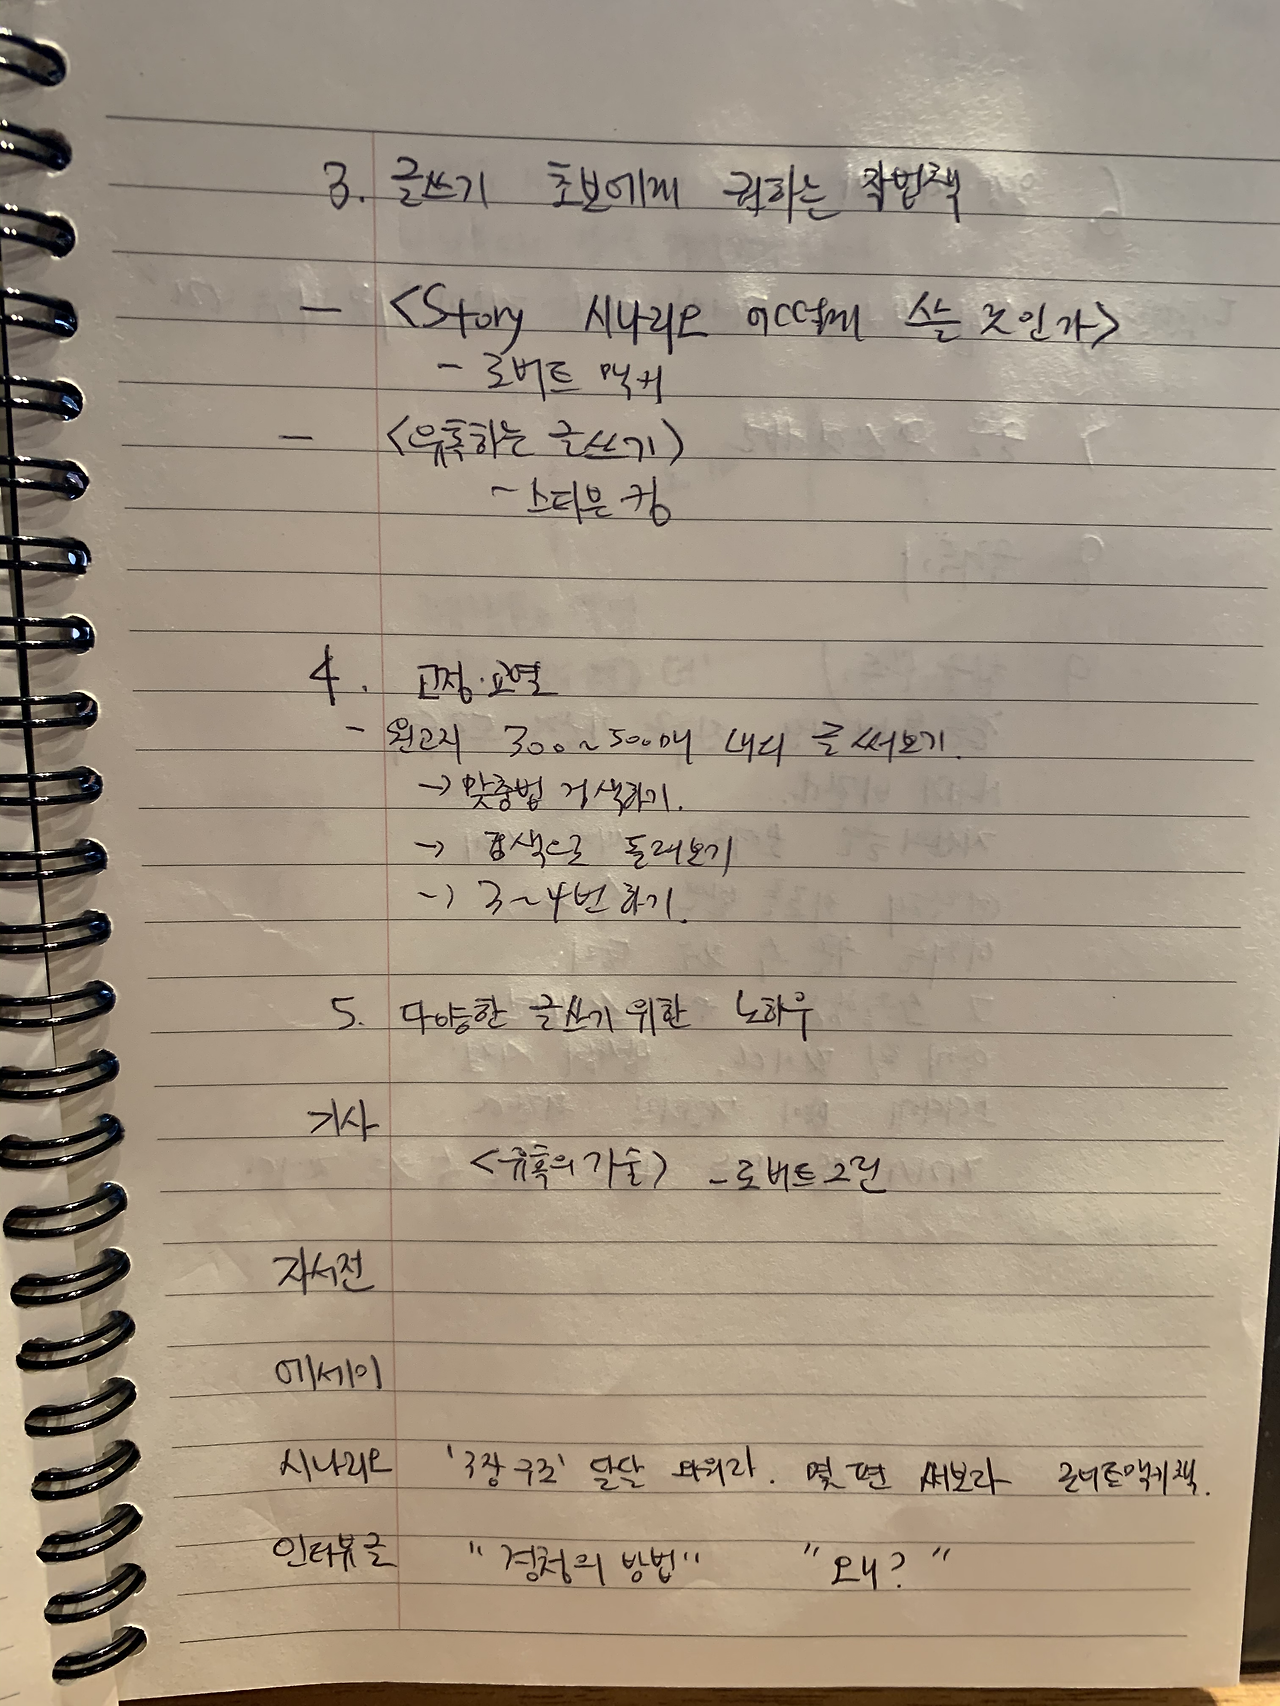 3. 글쓰기 초보에게 권하는 작법책
- <Story 시나리오 어떻게 쓸 것인가>
- 로버트 맥키
- <유혹하는 글쓰기>
- 스티븐 킹
4. 교정·교열
- 원고지 300~500매 내외 글 써보기.
→ 맞춤법 검색하기.
→ 검색으로 돌려보기
→ 3~4번 하기.
5. 다양한 글쓰기 위한 노하우
기사
<유혹의 기술> - 로버트 그린
자서전
에세이
시나리오 '3장 구조' 달달 외워라. 몇 편 써보라 로버트맥키책.
인터뷰글 "경청의 방법" "왜?"